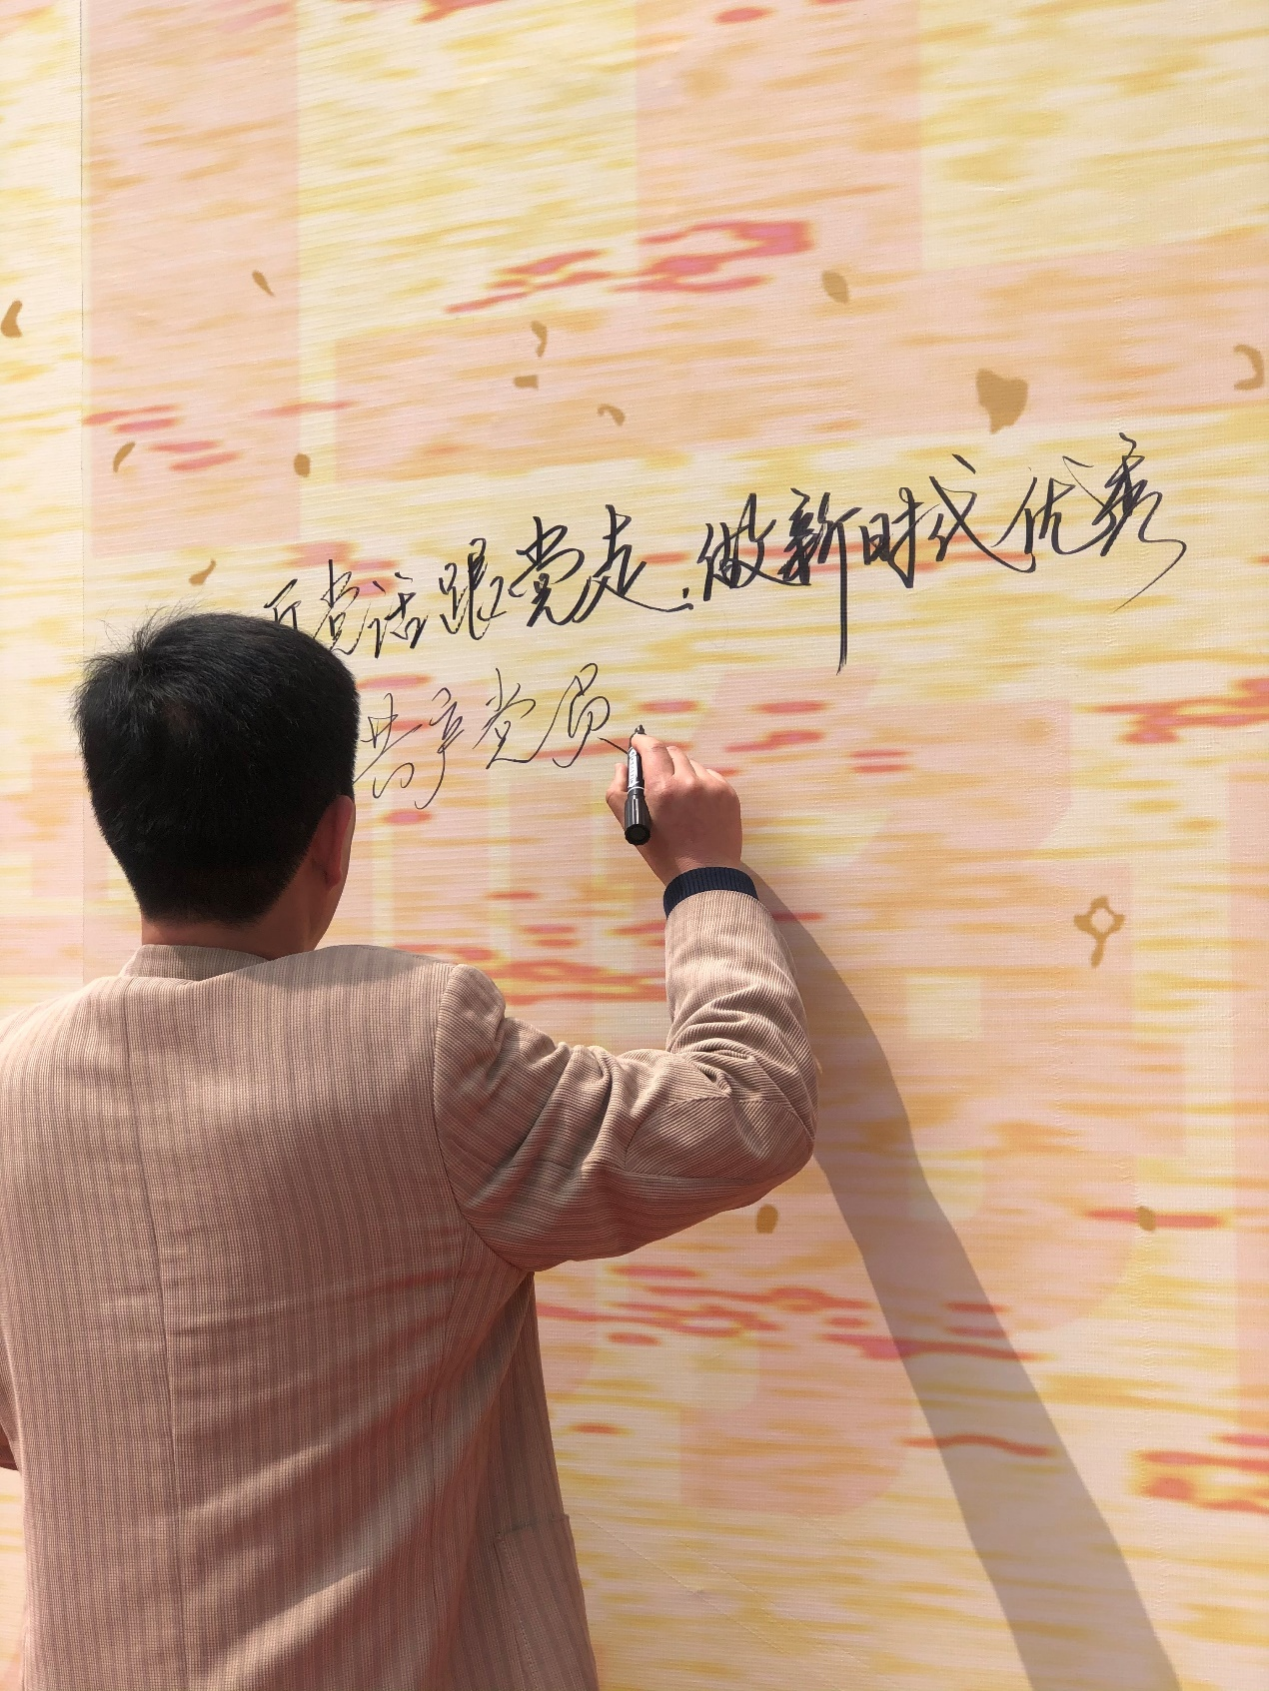 听党话跟党走.做新时代优秀
共产党员